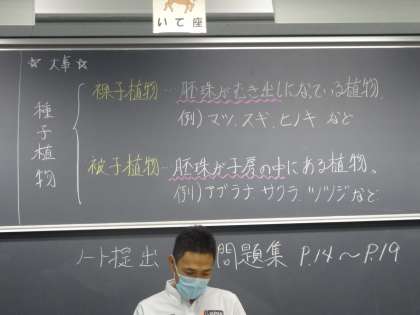 いて座
☆大事☆
種子植物
裸子植物…胚珠がむき出しになっている植物。
例)マツ、スギ、ヒノキ など
被子植物…胚珠が子房の中にある植物。
例)アブラナ、サクラ、ツツジなど
ノート提出 問題集 P.14～P.19